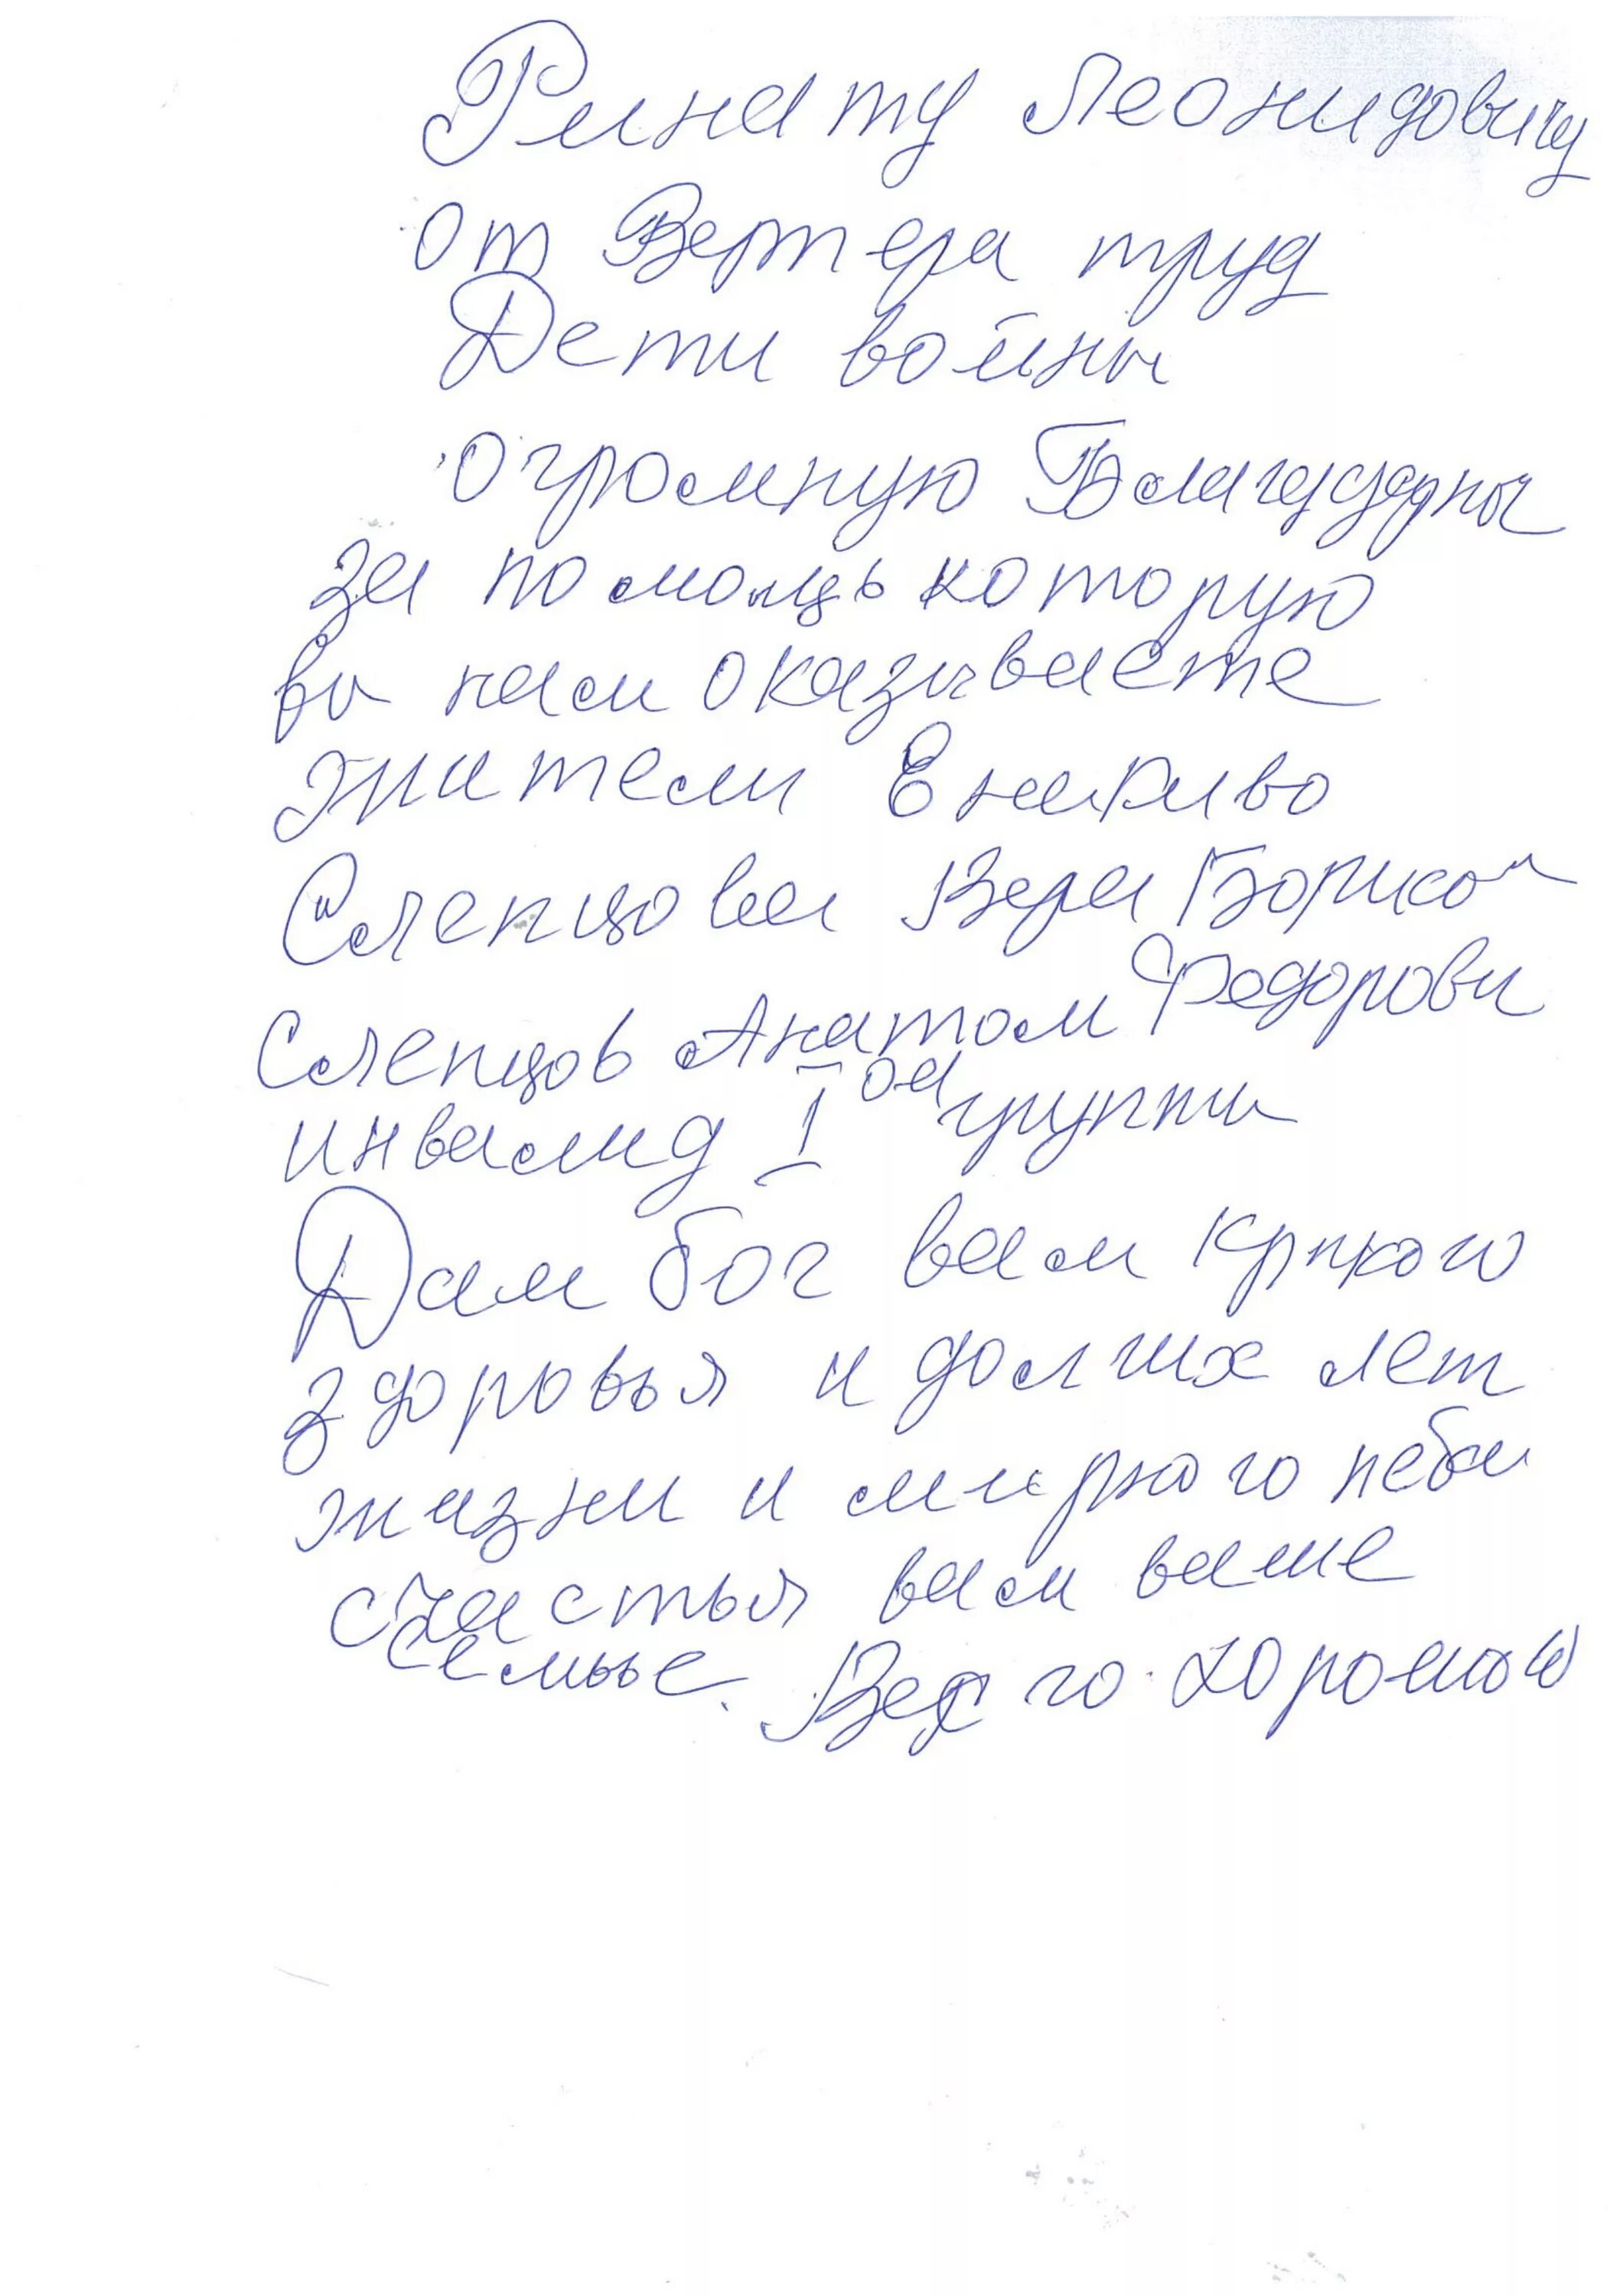 Ринату Леонидовичу
от Вертера труд
Дети войны
огромную
за помощь которую
ви нам оказываете
жители
Слепцова Вера
Федорови
Слепцов Анатол
инвалид I ой групти
Дам бог вам крпкого
здоровья и долгих лет
жизни и мирного неба
счастья вам ваше
семьье. Всего хорошого